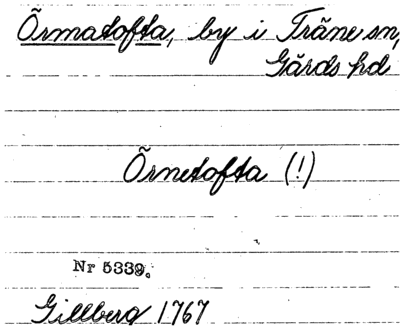 Õrmatofta, by i Trãne sn,
Gärds hd
Õrnetofta (!)
Nr 5339.
Gillberg 1767